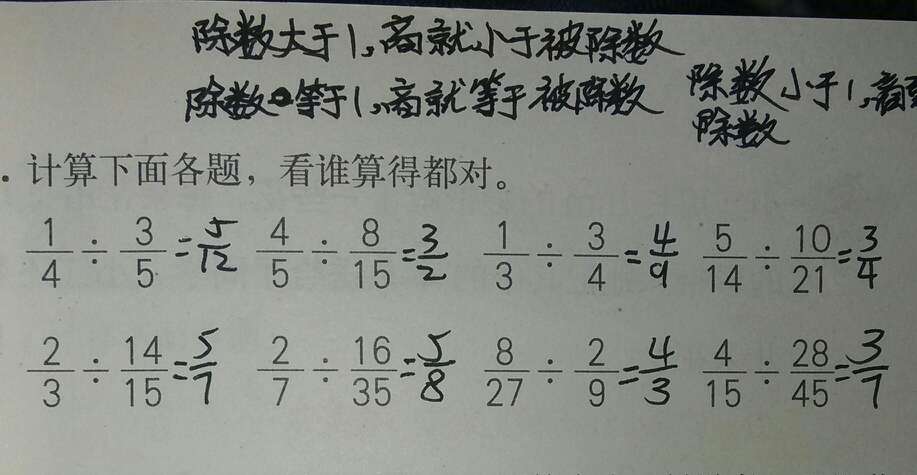 除数大于1,商就小于被除数
除数等于1,商就等于被除数 除数小于1,商
除数
. 计算下面各题，看谁算得都对。
1/4 ÷ 3/5 = 5/12 4/5 ÷ 8/15 = 3/2 1/3 ÷ 3/4 = 4/9 5/14 ÷ 10/21 = 3/4
2/3 ÷ 14/15 = 5/7 2/7 ÷ 16/35 = 5/8 8/27 ÷ 2/9 = 4/3 4/15 ÷ 28/45 = 3/7